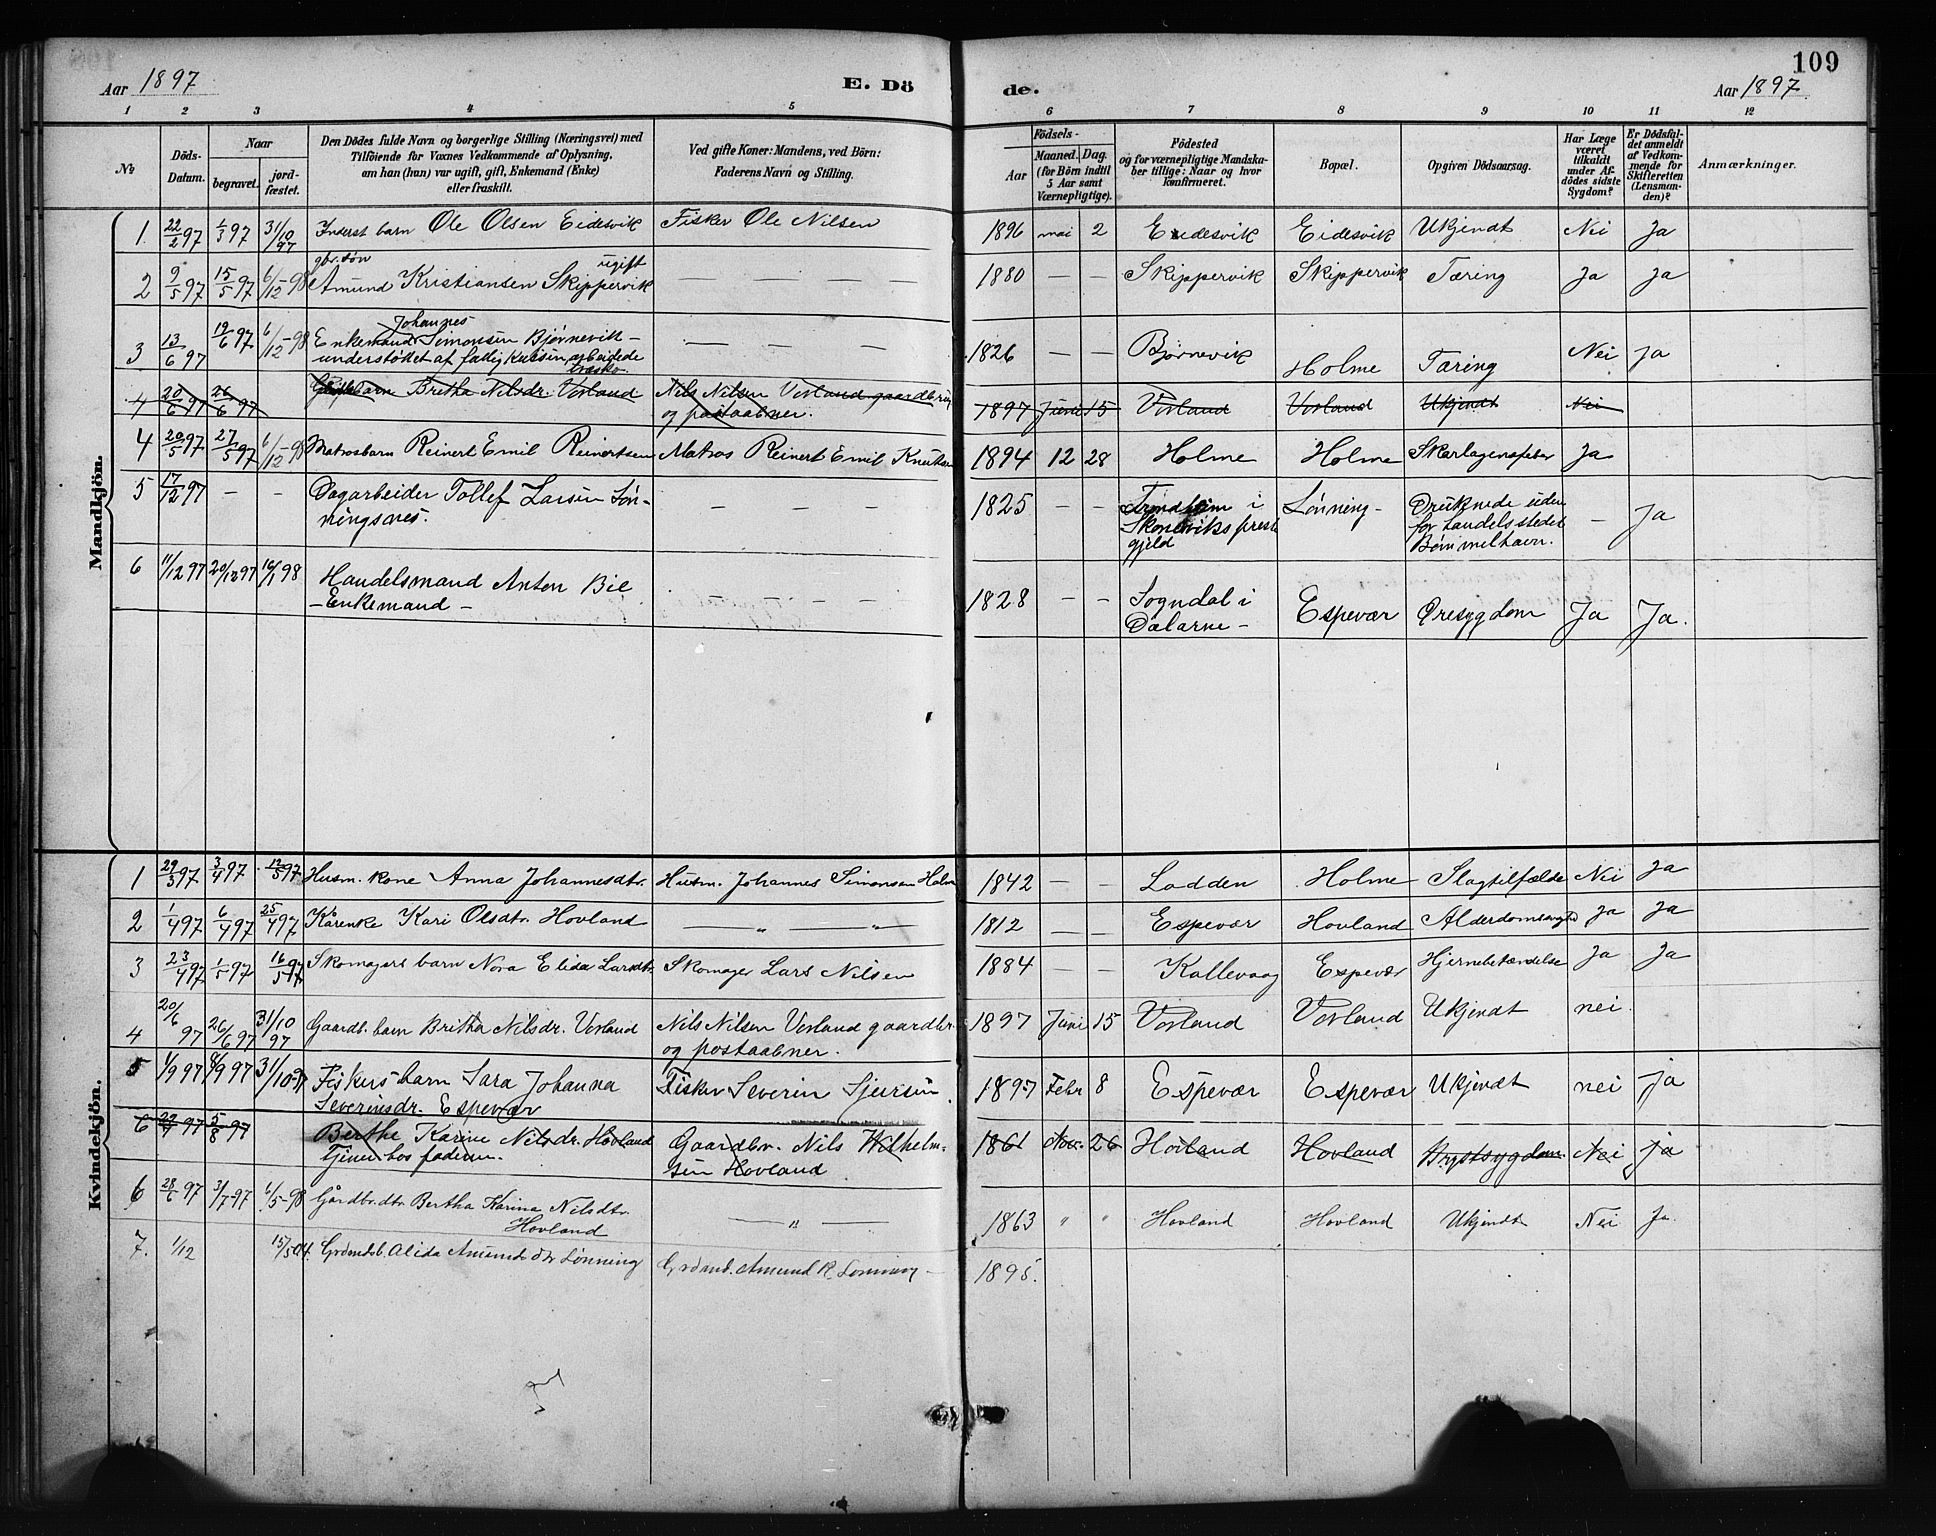 109
Aar 1897
E. Dö de.
Aar 1897
1 2 3 4 5 6 7 8 9 10 11 12
№
Döds-Datum.
Naar begravet. jordfæstet.
Den Dödes fulde Navn og borgerlige Stilling (Næringsvei) med
Tilföiende for Voxnes Vedkommende af Oplysning,
om han (hun) var ugift, gift, Enkemand (Enke)
eller fraskilt.
Ved gifte Koner: Mandens, ved Börn:
Faderens Navn og Stilling.
Födsels-
Aar
Maaned. Dag.
(for Börn indtil
5 Aar samt
Værnepligtige).
Födested
og for værnepligtige Mandska-
ber tillige: Naar og hvor
konfirmeret.
Bopæl.
Opgiven Dödsaarsag.
Har Læge
været
tilkaldt
under Af-
dödes sidste
Sygdom?
Er Dödsfal-
det anmeldt
af Vedkom-
mende for
Skifteretten
(Lensman-
den)?
Anmærkninger.
Mandkjön.
1 22/2 97 1/3 97 31/10 97 Inderst barn Ole Olsen Eidesvik Fisker Ole Nilsen 1896 mai 2 Eidesvik Eidesvik Ukjendt Nei Ja
gbr. søn ugift
2 9/5 97 15/5 97 6/12-98 Amund Kristiansen Skippervik — — — — 1880 — — Skippervik Skippervik Tæring Ja Ja
Johannes
3 13/6 97 19/6 97 6/12-98 Enkemand Simonsen Bjørnevik — — — — — 1826 — — Bjørnevik Holme Tæring Nei Ja
understøttet af fattigkassen, arbeidede
træsko.
4 20/6 97 26/6 97 barn Britha Nilsdr. Vorland Nils Nilsen Vorland gaardbr. 1897 Juni 15 Vorland Vorland Ukjendt Nei
og postaabner.
4 20/5 97 27/5 97 6/12-98 Matrosbarn Reinert Emil Reinertsen Matros Reinert Emil Knutsen 1894 12 28 Holme Holme Skarlagensfeber Ja
5 17/12 97 — — Dagarbeider Tollef Larsen Løn- — — — 1825 — — i Lønning — Druknede uden — Ja
ningsnes. Skoneviks præste for Handelsstedet
gjeld Bømmelhavn.
6 11/12 97 20/12 97 16/1 98 Handelsmand Anton Bie — — — — 1828 — — Sogndal i Espevær Øresygdom Ja Ja.
— Enkemand — Dalarne —
Kvindekjön.
1 29/3 97 3/4 97 12/5 97 Husm. kone Anna Johannesdtr. Husm. Johannes Simonsen Holm 1842 — — Lodden Holme Slagtilfælde Nei Ja
2 1/4 97 6/4 97 25/4 97 Kårenke Kari Olsdtr. Hovland — „ — „ 1812 — — Espevær Hovland Alderdomssvaghed Ja Ja
3 23/4 97 1/5 97 16/5 97 Skomagers barn Nora Elida Larsdtr. Skomager Lars Nilsen 1884 — — Kallevaag Espevær Hjernebetændelse Ja Ja
4 20/6 97 26/6 97 31/10 97 Gaardb. barn Britha Nilsdr. Vorland Nils Nilsen Vorland gaardbr. 1897 Juni 15 Vorland Vorland Ukjendt nei
og postaabner.
5 1/9 97 8/9 97 31/10-97 Fiskers barn Sara Johanna Fisker Severin Sjursen. 1897 Febr 8 Espevær Espevær Ukjendt nei ja
Severinsdr. Espevær
6 97 5/8 97 Berthe Karine Nilsdr. Hovland Gaardbr. Nils Wilhelm- 1861 Nov. 26 Hovland Hovland Brystsygdom Nei ja
tjener hos faderen. sen Hovland
6 28/6 97 3/7-97 6/5-98 Gårdbr. dtr. Bertha Karina Nilsdtr. — „ — 1863 „ „ Hovland Hovland Ukjendt Nei Ja
Hovland
7. 1/12 15/5 04. Grdmdsb. Alida Amunds dtr Lønning Grdmd. Amund R. Lønning — 1895.